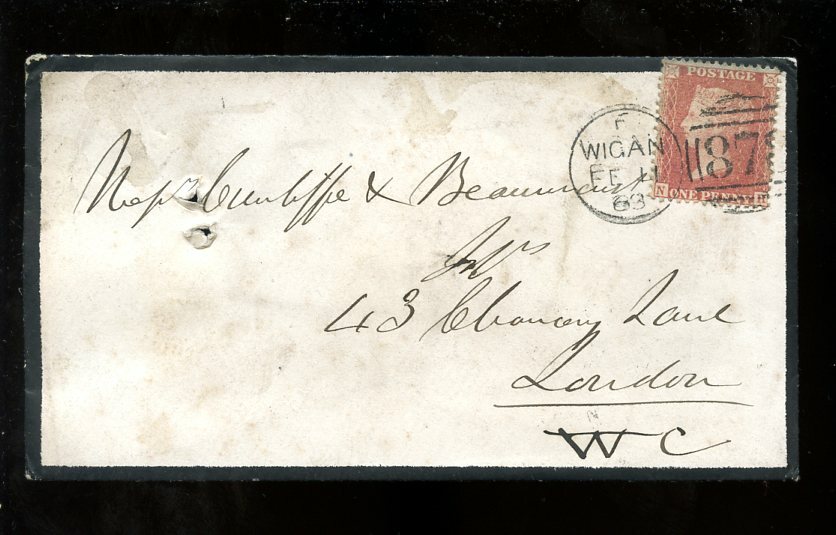 POSTAGE
F
WIGAN
FE 11
63
87
N ONE PENNY
Messrs Cunliffe & Beaumont
43 Chancery Lane
London
W C